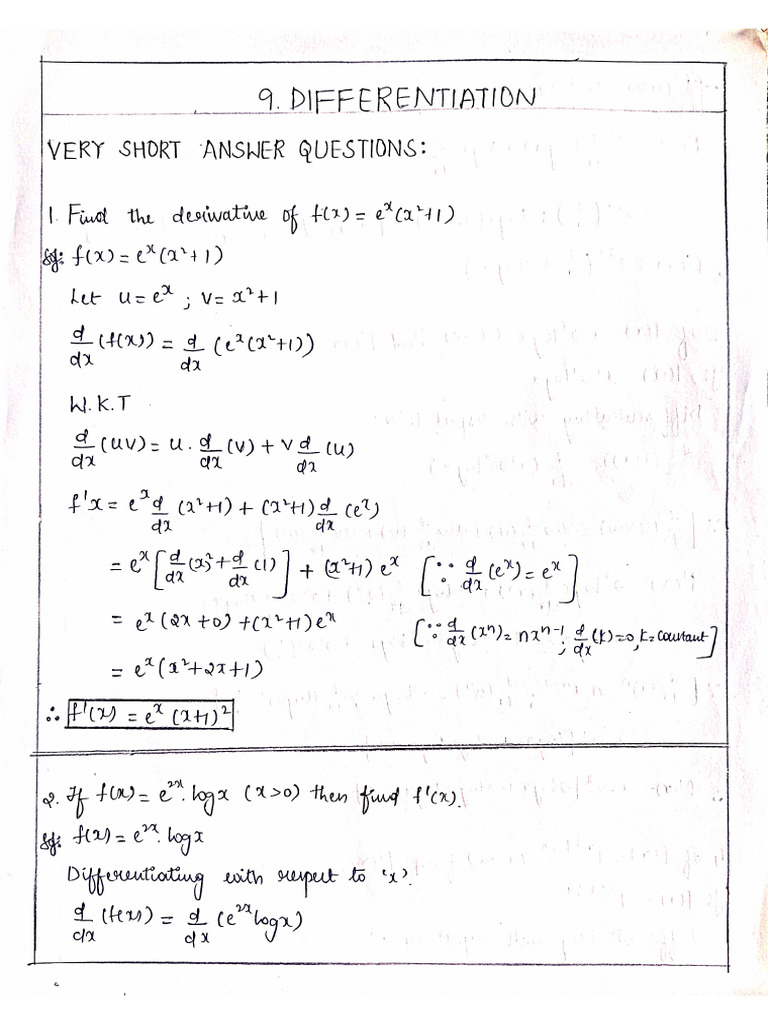 9. DIFFERENTIATION
VERY SHORT ANSWER QUESTIONS:
1. Find the derivative of f(x) = eˣ(x²+1)
Sol: f(x) = eˣ(x²+1)
Let u = eˣ ; v = x²+1
d/dx (f(x)) = d/dx (eˣ(x²+1))
W.K.T
d/dx (uv) = u. d/dx (v) + v d/dx (u)
f'x = eˣ d/dx (x²+1) + (x²+1) d/dx (eˣ)
= eˣ [d/dx (x)² + d/dx (1)] + (x²+1) eˣ [∵ d/dx (eˣ) = eˣ]
= eˣ (2x+0) + (x²+1) eˣ [∵ d/dx (xⁿ) = nxⁿ⁻¹ ; d/dx (k) = 0, k = constant]
= eˣ (x²+2x+1)
∴ f'(x) = eˣ (x+1)²
2. If f(x) = e²ˣ. logx (x>0) then find f'(x).
Sol: f(x) = e²ˣ. logx
Differentiating with respect to 'x'.
d/dx (f(x)) = d/dx (e²ˣ logx)